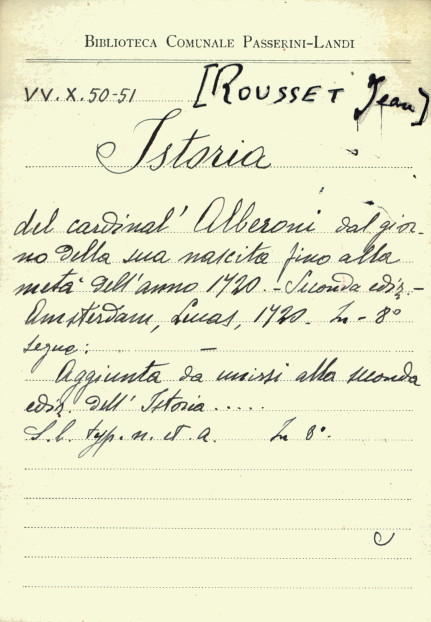 BIBLIOTECA COMUNALE PASSERINI-LANDI
VV.X.50-51 [ROUSSET Jean]
Istoria
del cardinal' Alberoni dal gior-
no della sua nascita fino alla
metà dell'anno 1720. - Seconda ediz. -
Amsterdam, Lucas, 1720. In - 8°
segue: —
Aggiunta da unirsi alla seconda
ediz. dell' Istoria.....
S.l. typ. n. et a. In 8°.
C